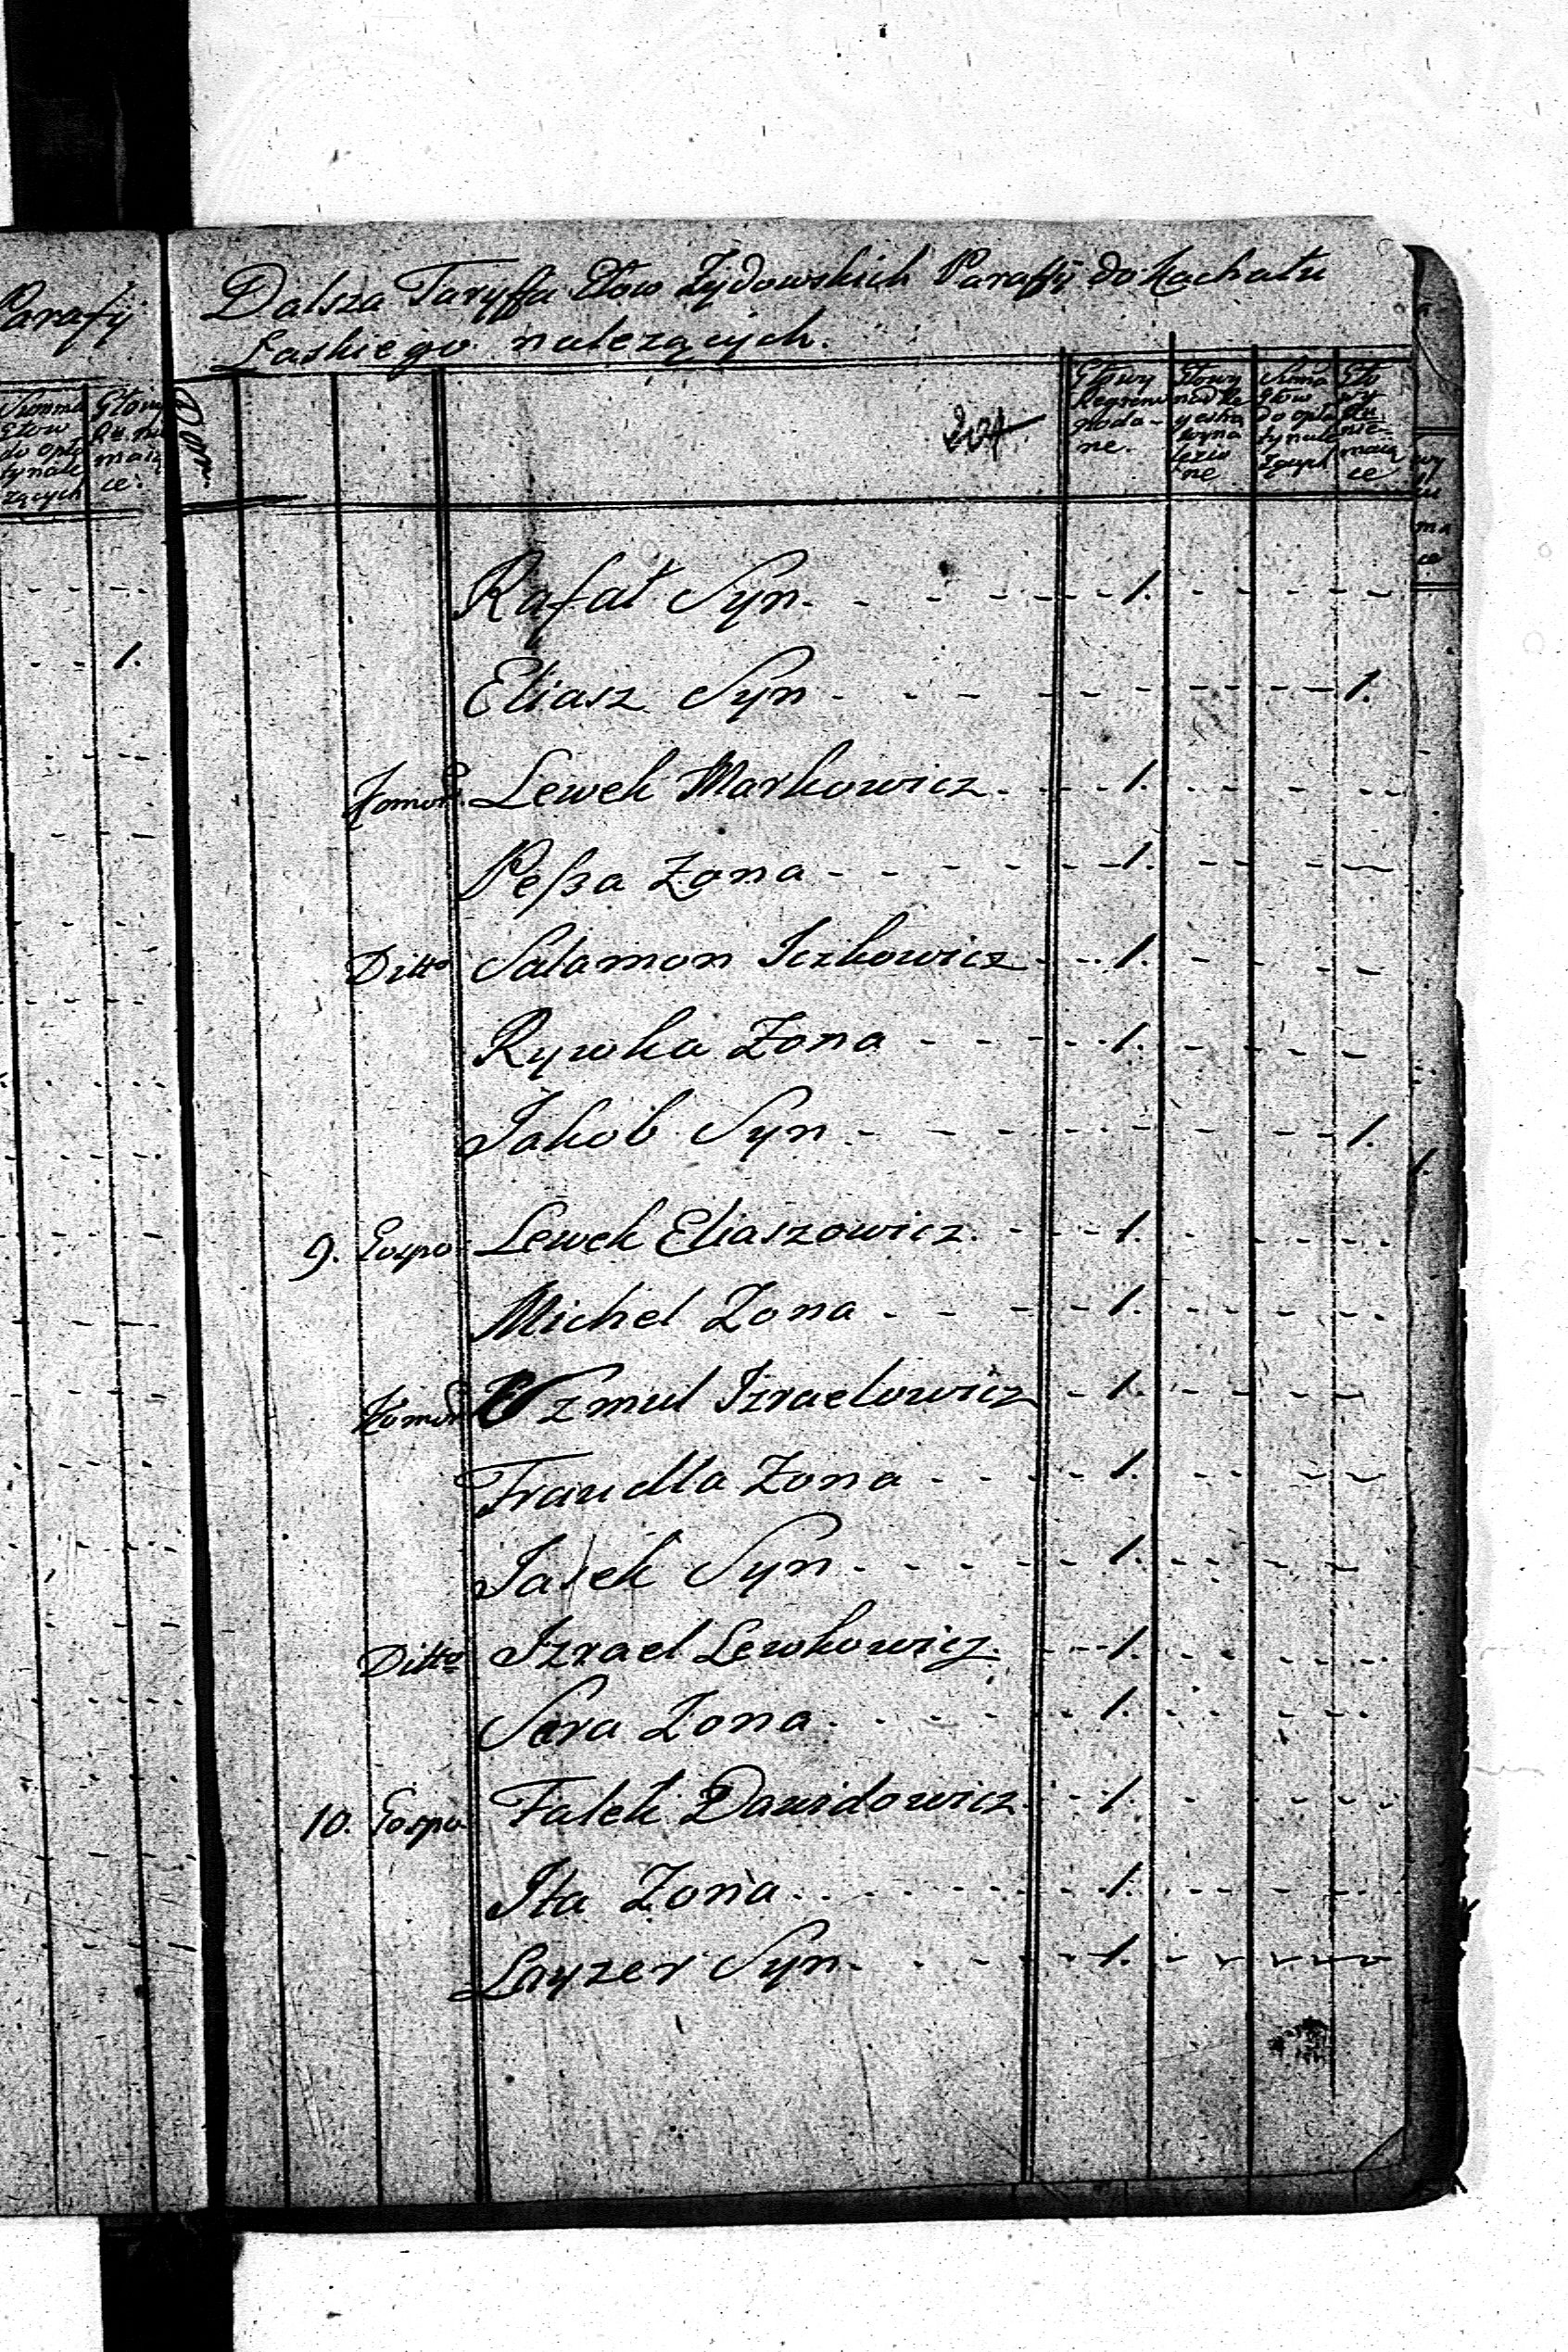 Parafij
Summa
Głow
do opła
ty nale
żących
Głowy
maią
ce.
1.
Dalsza Taryffa Głow Żydowskich Parafij do Kachału
Łaskiego należących.
204
Głowy
poda-
ne.
Głowy
nad Re
gestra
wyna
lezio
ne
Suma
Głow
do opła
ty nale
żących
Gło
wy
nie-
maią
ce
Rafał Syn. 1.
Eliasz Syn 1.
Komor. Lewek Markowicz. 1.
Peßa Zona 1.
Ditto Salamon Iczkowicz 1.
Rywka Zona 1.
Jakob Syn 1.
9. Gospo. Lewek Eliaszowicz. 1.
Michel Zona 1.
Komor. Szmul Izraelowicz 1.
Fraudla Zona 1.
Jasek Syn 1.
Ditto Izrael Lewkowicz. 1.
Sera Zona. 1.
10. Gospo. Falek Dawidowicz. 1.
Ita Zona. 1.
Layzer Syn. 1.